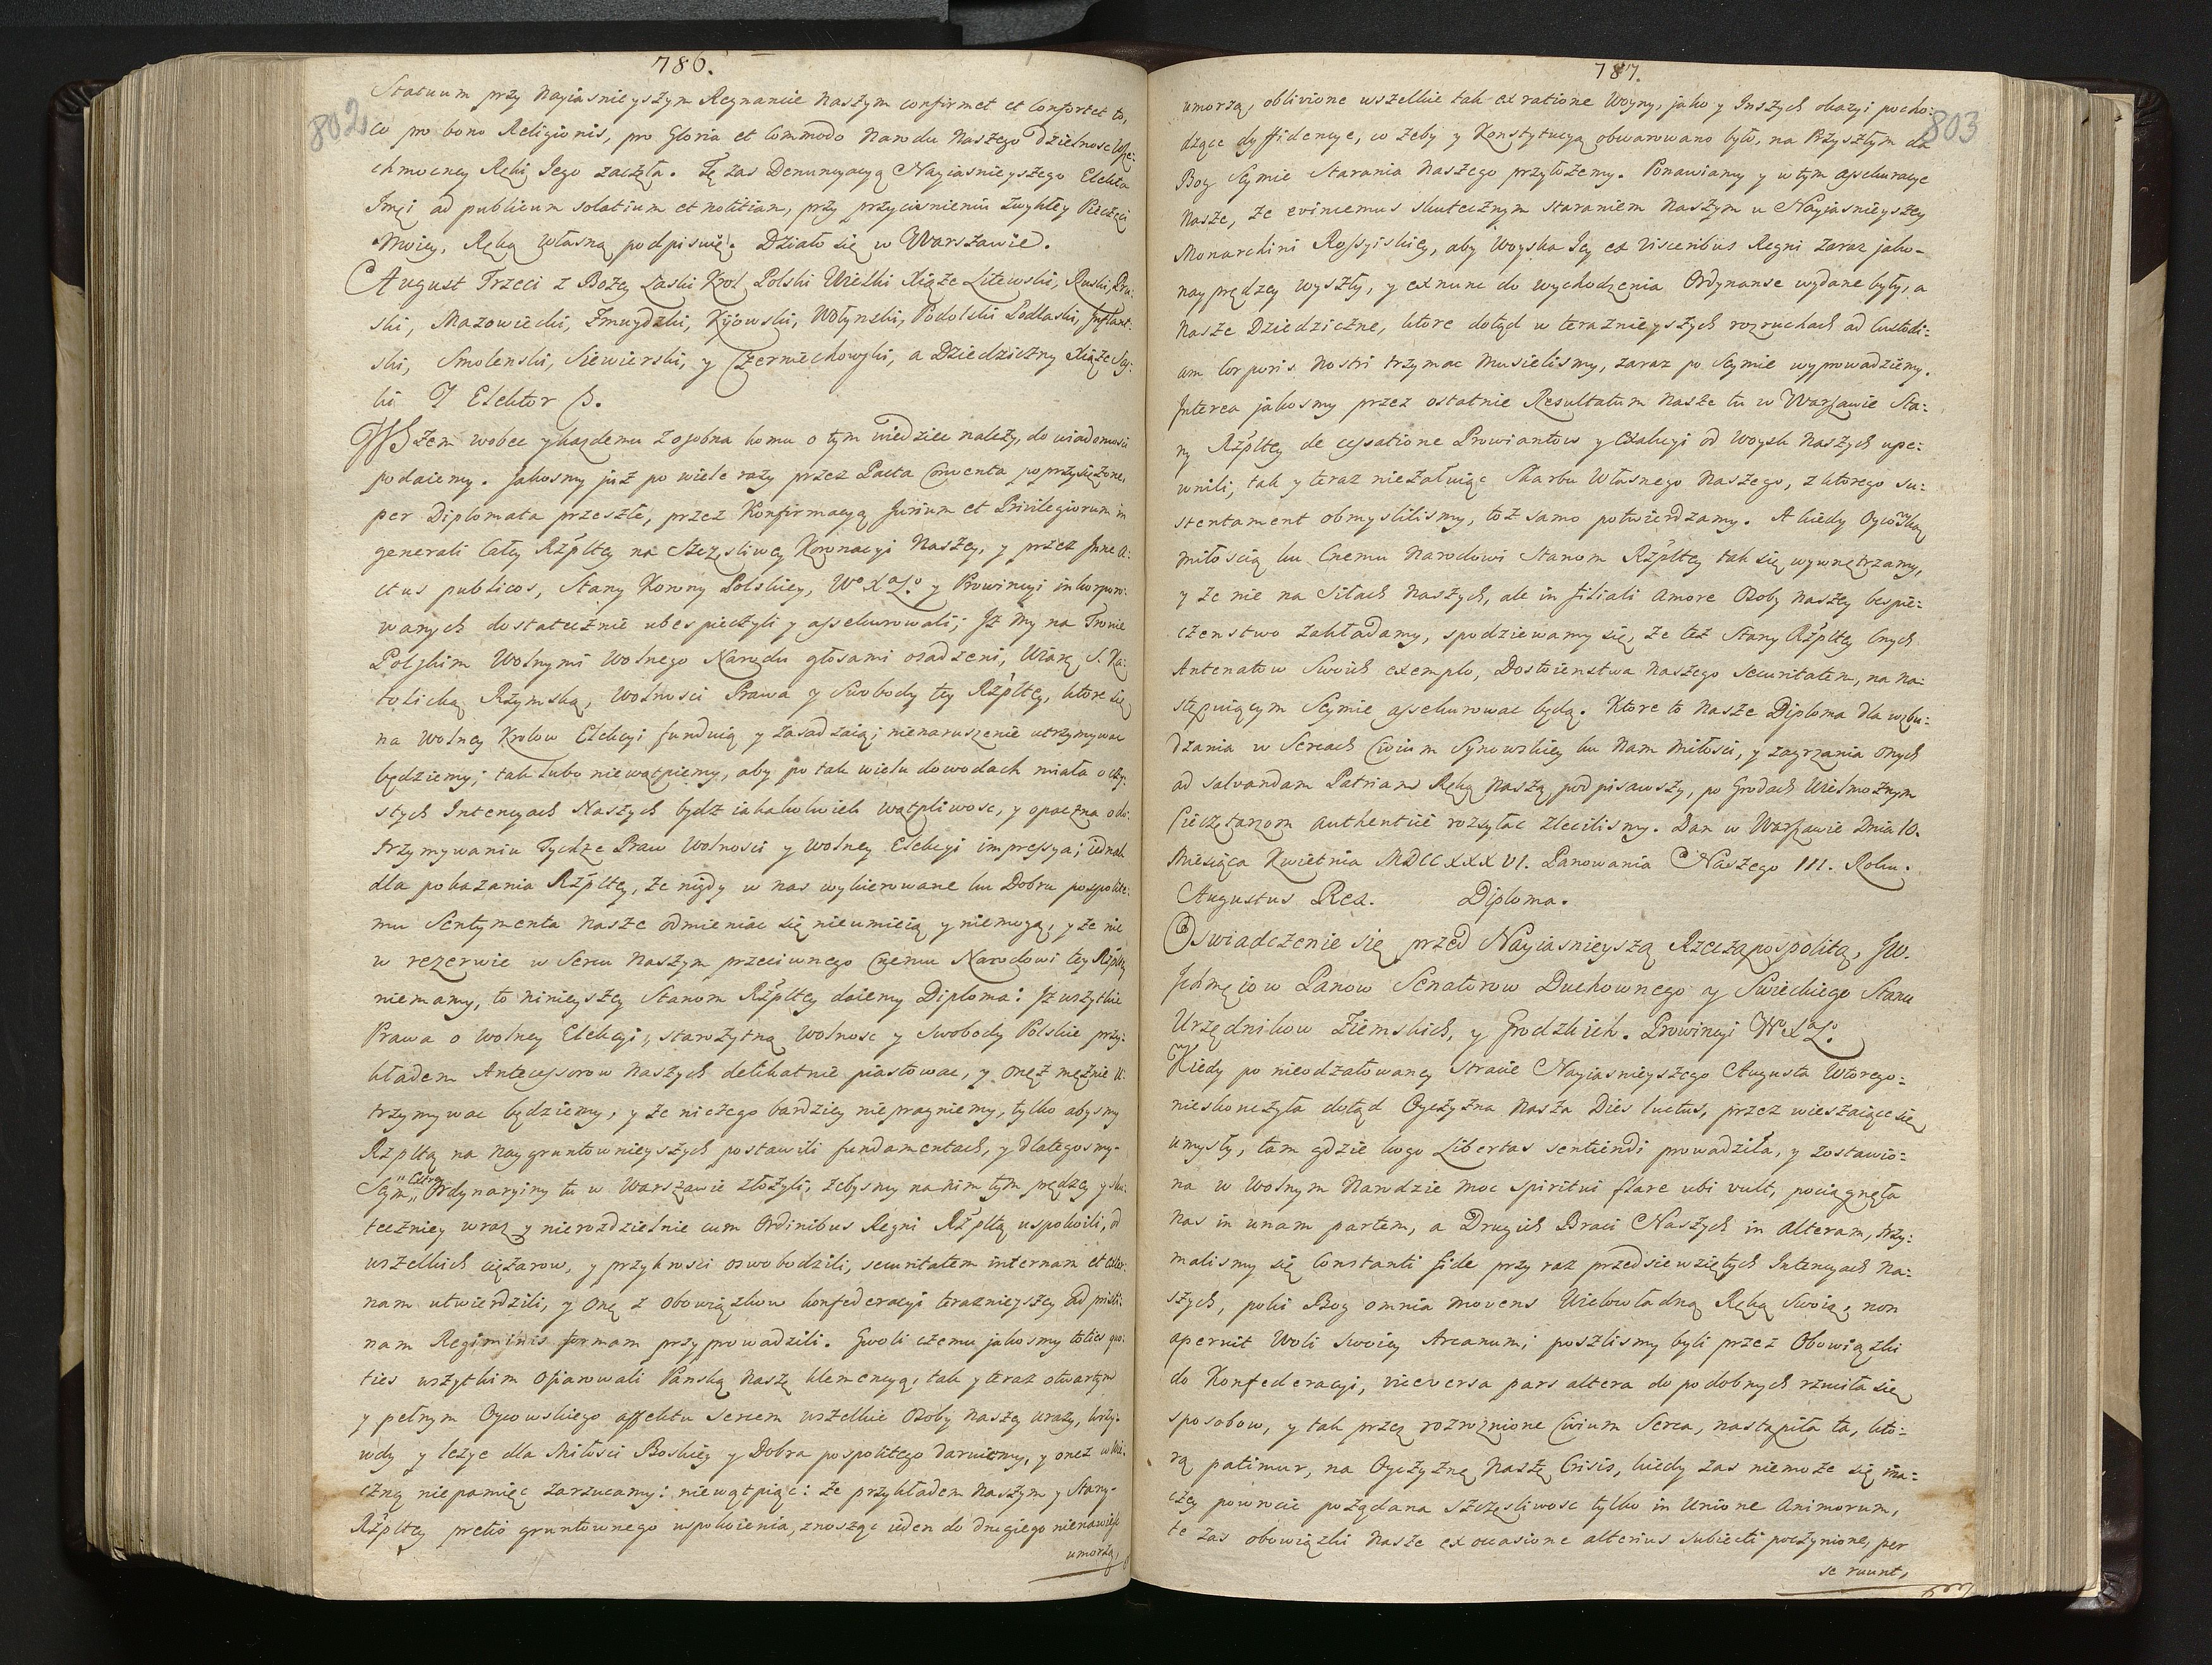 786.
802
Statuum przy Nayiasnieyszym Regnancie Naszym confirmet et Confortet to,
co pro bono Religionis, pro Gloria et Commodo Narodu Naszego Dzielnosc Wsze-
chmocney Ręki Jego zaczęła. Tę zas Denuncyacyą Nayiasnieyszego Elekta
Imci ad publicum solatium et notitiam, przy przycisnieniu zwykłey Pieczęci
Moiey, Ręką własną podpisuię. Działo się w Warszawie.
August Trzeci z Bożey Łaski Krol Polski Wielki Xiąże Litewski, Ruski, Pru-
ski, Mazowiecki, Zmuydzki, Kijowski, Wołynski, Podolski Podlaski, Inflant-
ski, Smolenski, Siewierski, y Czerniechowski, a Dziedziczny Xiąże Sas-
ki J Elektor
WSzem wobec y każdemu z osobna komu o tym wiedziec należy, do wiadomosci
podaiemy. Jakosmy już po wiele razy przez Pacta Conventa poprzysiężone,
per Diplomata przeszłe, przez Konfirmacyą Jurium et Privilegiorum in
generali całey Rzpltey na Szczęsliwey Koronacyi Naszey, y przez Inne A-
ctus publicos, Stany Korony Polskiey, Wo Xa Lo y Prowincyi inkorporo-
wanych dostatecznie ubespieczyli y assekurowali; Iż My na Tronie
Polskim Wolnymi wolnego Narodu głosami osadzeni, Wiarę S. Ka-
tolicką Rzymską, Wolnosci Prawa y Swobody tey Rzpltey, ktore się
na wolney Krolow Elekcyi funduią y zasadzaią; nienaruszenie utrzymywac
będziemy; tak lubo niewątpiemy, aby po tak wielu dowodach miała o czy-
stych Intencyach Naszych bydz iakakolwiek wątpliwosc, y opaczna o do-
trzymywaniu Tychże Praw Wolnosci y wolney Elekcyi impressya; iednak
dla pokazania Rzpltey, że nigdy w nas wykierowane ku Dobru pospolite-
mu Sentymenta Nasze odmieniac się nieumieią y niemogą, y że nic
w rezerwie w Sercu Naszym przeciwnego Cnemu Narodowi tey Rzpltey
niemamy, to ninieyszey Stanom Rzpltey daiemy Diploma: Iż wszytkie
Prawa o wolney Elekcyi, starożytną Wolnosc y Swobody Polskie przy-
kładem Antecessorow Naszych delikatnie piastowac, y oneż mężnie u-
trzymywac będziemy, y że niczego bardziey niepragniemy, tylko abysmy
Rzpltą na naygruntownieyszych postawili fundamentach, y dlategosmy-
Seym " Extra " Ordynaryiny tu w Warszawie złożyli, żebysmy na nim tym prędzey y sku-
teczniey wraz y nierozdzielnie cum Ordinibus Regni Rzpltą uspokoili, od
wszelkich ciężarow, y przykrosci oswobodzili, securitatem internam et exter-
nam utwierdzili, y onę z obowiązkow konfederacyi teraznieyszey ad pristi-
nam Regiminis formam przyprowadzili. Gwoli czemu jakosmy toties quo-
ties wszytkim ofiarowali Panską Naszę klemencyą, tak y teraz otwartym
y pełnym Oycowskiego affektu Sercem wszelkie Osoby Naszey urazy, krzy-
wdy y lezye dla Miłosci Boskiey y Dobra pospolitego daruiemy, y oneż w wie-
czną niepamięc zarzucamy: niewątpiąc: że przykładem Naszym y Stany-
Rzpltey pretio gruntownego uspokoienia, znosząc ieden do drugiego nienawisc
umorzą,
787.
803
umorzą, oblivione wszelkie tak ex ratione Woyny, jako y Inszych okazyi pocho-
dzące dyffidencye, co żeby y Konstytucyą obwarowano było, na Przyszłym da
Bog Seymie Starania Naszego przyłożemy. Ponawiamy y w tym assekuracye
Nasze, że evincemus skutecznym staraniem Naszym u Nayiasnieyszey
Monarchini Rossyiskiey, aby Woyska Iey ex visceribus Regni zaraz jako-
nayprędzey wyszły, y exnunc do wychodzenia Ordynanse wydane były, a
Nasze Dziedziczne, ktore dotąd w teraznieyszych rozruchach ad Custodi-
am Corporis Nostri trzymac musielismy, zaraz po Seymie wyprowadziemy.
Interea jakosmy przez ostatnie Resultatum Nasze tu w Warszawie Sta-
ny Rzpltey de cessatione Prowiantow y Exakcyi od Woysk Naszych upe-
wnili, tak y teraz nieżałuiąc Skarbu Własnego Naszego, z ktorego su-
stentament obmyslilismy, toż samo potwierdzamy. A kiedy Oycowską
miłoscią ku Cnemu Narodowi Stanom Rzpltey tak się wywnętrzamy,
y że nie na Siłach Naszych, ale in filiali Amore Osoby Naszey bespie-
czenstwo zakładamy, spodziewamy się, że też Stany Rzpltey Cnych
Antenatow Swoich exemplo, Dostoienstwa Naszego Securitatem, na na-
stępuiącym Seymie assekurowac będą. Ktore to Nasze Diploma dla wzbu-
dzania w Sercach Civium Synowskiey ku Nam Miłosci, y zagrzania onych
ad salvandam Patriam Ręką Naszą podpisawszy, po Grodach Wielmożnym
Pieczętarzom authentice rozsyłac zlecilismy. Dan w Warszawie Dnia 10.
Miesiąca Kwietnia MDCCXXXVI. Panowania Naszego III. Roku.
Augustus Rex. Diploma.
Oswiadczenie się przed Nayiasnieyszą Rzecząpospolitą, JW.
Ichmęciow Panow Senatorow Duchownego y Swieckiego Stanu
Urzędnikow Ziemskich, y Grodzkich. Prowincyi W Xa Lo.
Kiedy po nieodżałowaney stracie Nayiasnieyszego Augusta Wtorego-
nieskonczyła dotąd Oyczyzna Nasza Dies luctus, przez wieszaiące się
umysły, tam gdzie kogo Libertas sentiendi prowadziła, y zostawio-
na w Wolnym Narodzie moc spiritui flare ubi vult, pociągnęła
nas in unam partem, a Drugich Braci Naszych in alteram, trzy-
malismy się Constanti fide przy raz przedsiewziętych Intencyach Na-
szych, poki Bog omnia movens Wielowładną Ręką Swoią, non
aperuit Woli Swoiey Arcanum; poszlismy byli przez Obowiązki
do Konfederacyi, viceversa pars altera do podobnych rzuciła się
sposobow, y tak przez rozroznione Civium Serca, nastąpiła ta, kto-
rą patimur, na Oyczyznę Naszę Crisis, kiedy zas niemoże się ina-
czey powrocic pożądana szczęsliwosc tylko in Unione Animorum,
te zas obowiązki Nasze ex occasione alterius Subiecti poczynione, per
se ruunt,